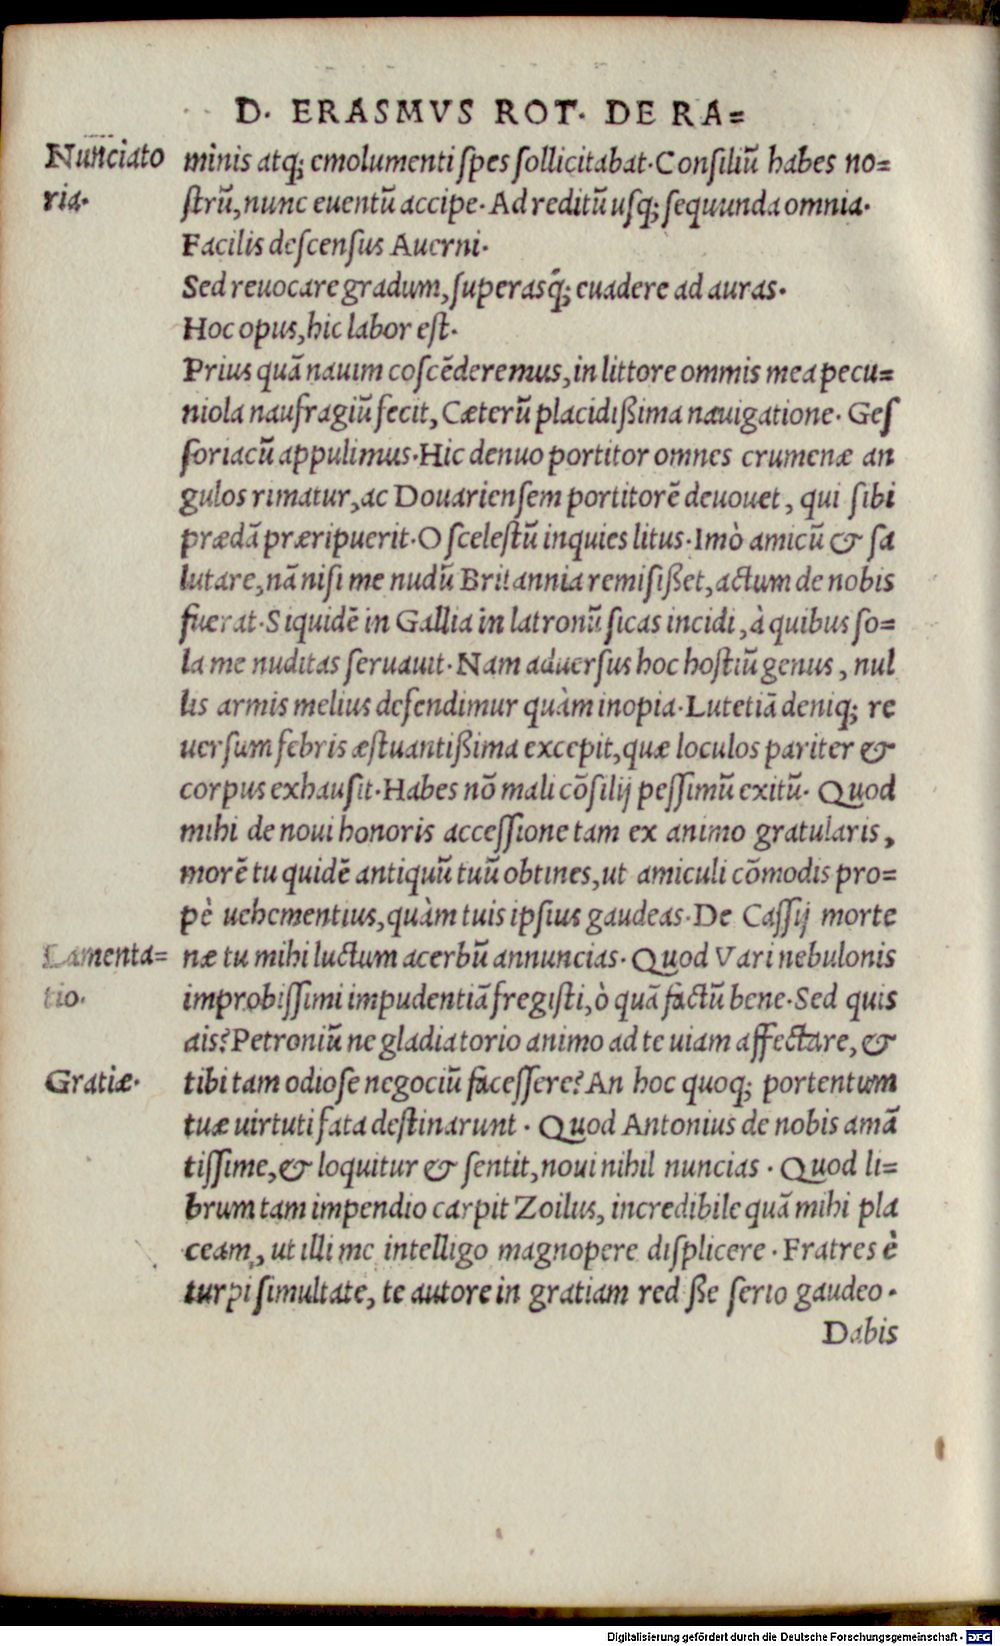 D. ERASMVS ROT. DE RA=
Nunciato
ria.
minis atq; emolumenti ſpes ſollicitabat. Conſiliũ habes no=
ſtrũ, nunc euentũ accipe. Ad reditũ uſq; ſequunda omnia.
Facilis deſcenſus Auerni.
Sed reuocare gradum, ſuperasq́; euadere ad auras.
Hoc opus, hic labor eſt.
Prius quã nauim coſcẽderemus, in littore ommis mea pecu=
niola naufragiũ fecit, Cæterũ placidißima nauigatione. Geſ
ſoriacũ appulimus. Hic denuo portitor omnes crumenæ an
gulos rimatur, ac Douarienſem portitorẽ deuouet, qui ſibi
prædã præripuerit. O ſceleſtũ inquies litus. Imò amicũ & ſa
lutare, nã niſi me nudũ Britannia remiſißet, actum de nobis
fuerat. Siquidẽ in Gallia in latronũ ſicas incidi, à quibus ſo=
la me nuditas ſeruauit. Nam aduerſus hoc hoſtiũ genus, nul
lis armis melius defendimur quàm inopia. Lutetiã deniq; re
uerſum febris æſtuantißima excepit, quæ loculos pariter &
corpus exhauſit. Habes nõ mali cõſilij peſſimũ exitũ. Quod
mihi de noui honoris acceſſione tam ex animo gratularis,
morẽ tu quidẽ antiquũ tuũ obtines, ut amiculi cõmodis pro=
pè uehementius, quàm tuis ipſius gaudeas. De Caſſij morte
Lamenta=
tio.
næ tu mihi luctum acerbũ annuncias. Quod Vari nebulonis
improbiſſimi impudentiã fregiſti, ò quã factũ bene. Sed quis
ais? Petroniũ ne gladiatorio animo ad te uiam affectare, &
Gratiæ.
tibi tam odioſe negociũ faceſſere? An hoc quoq; portentum
tuæ uirtuti fata deſtinarunt. Quod Antonius de nobis amã
tiſſime, & loquitur & ſentit, noui nihil nuncias. Quod li=
brum tam impendio carpit Zoilus, incredibile quã mihi pla
ceam, ut illi me intelligo magnopere diſplicere. Fratres è
turpi ſimultate, te autore in gratiam red ße ſerio gaudeo.
Dabis
Digitalisierung gefördert durch die Deutsche Forschungsgemeinschaft - DFG